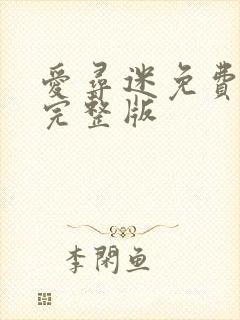 愛尋迷免費
完整版
李閑鱼